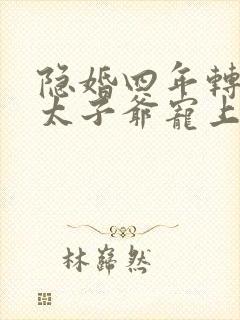 隐婚四年轉
太子爺寵上
林巋然